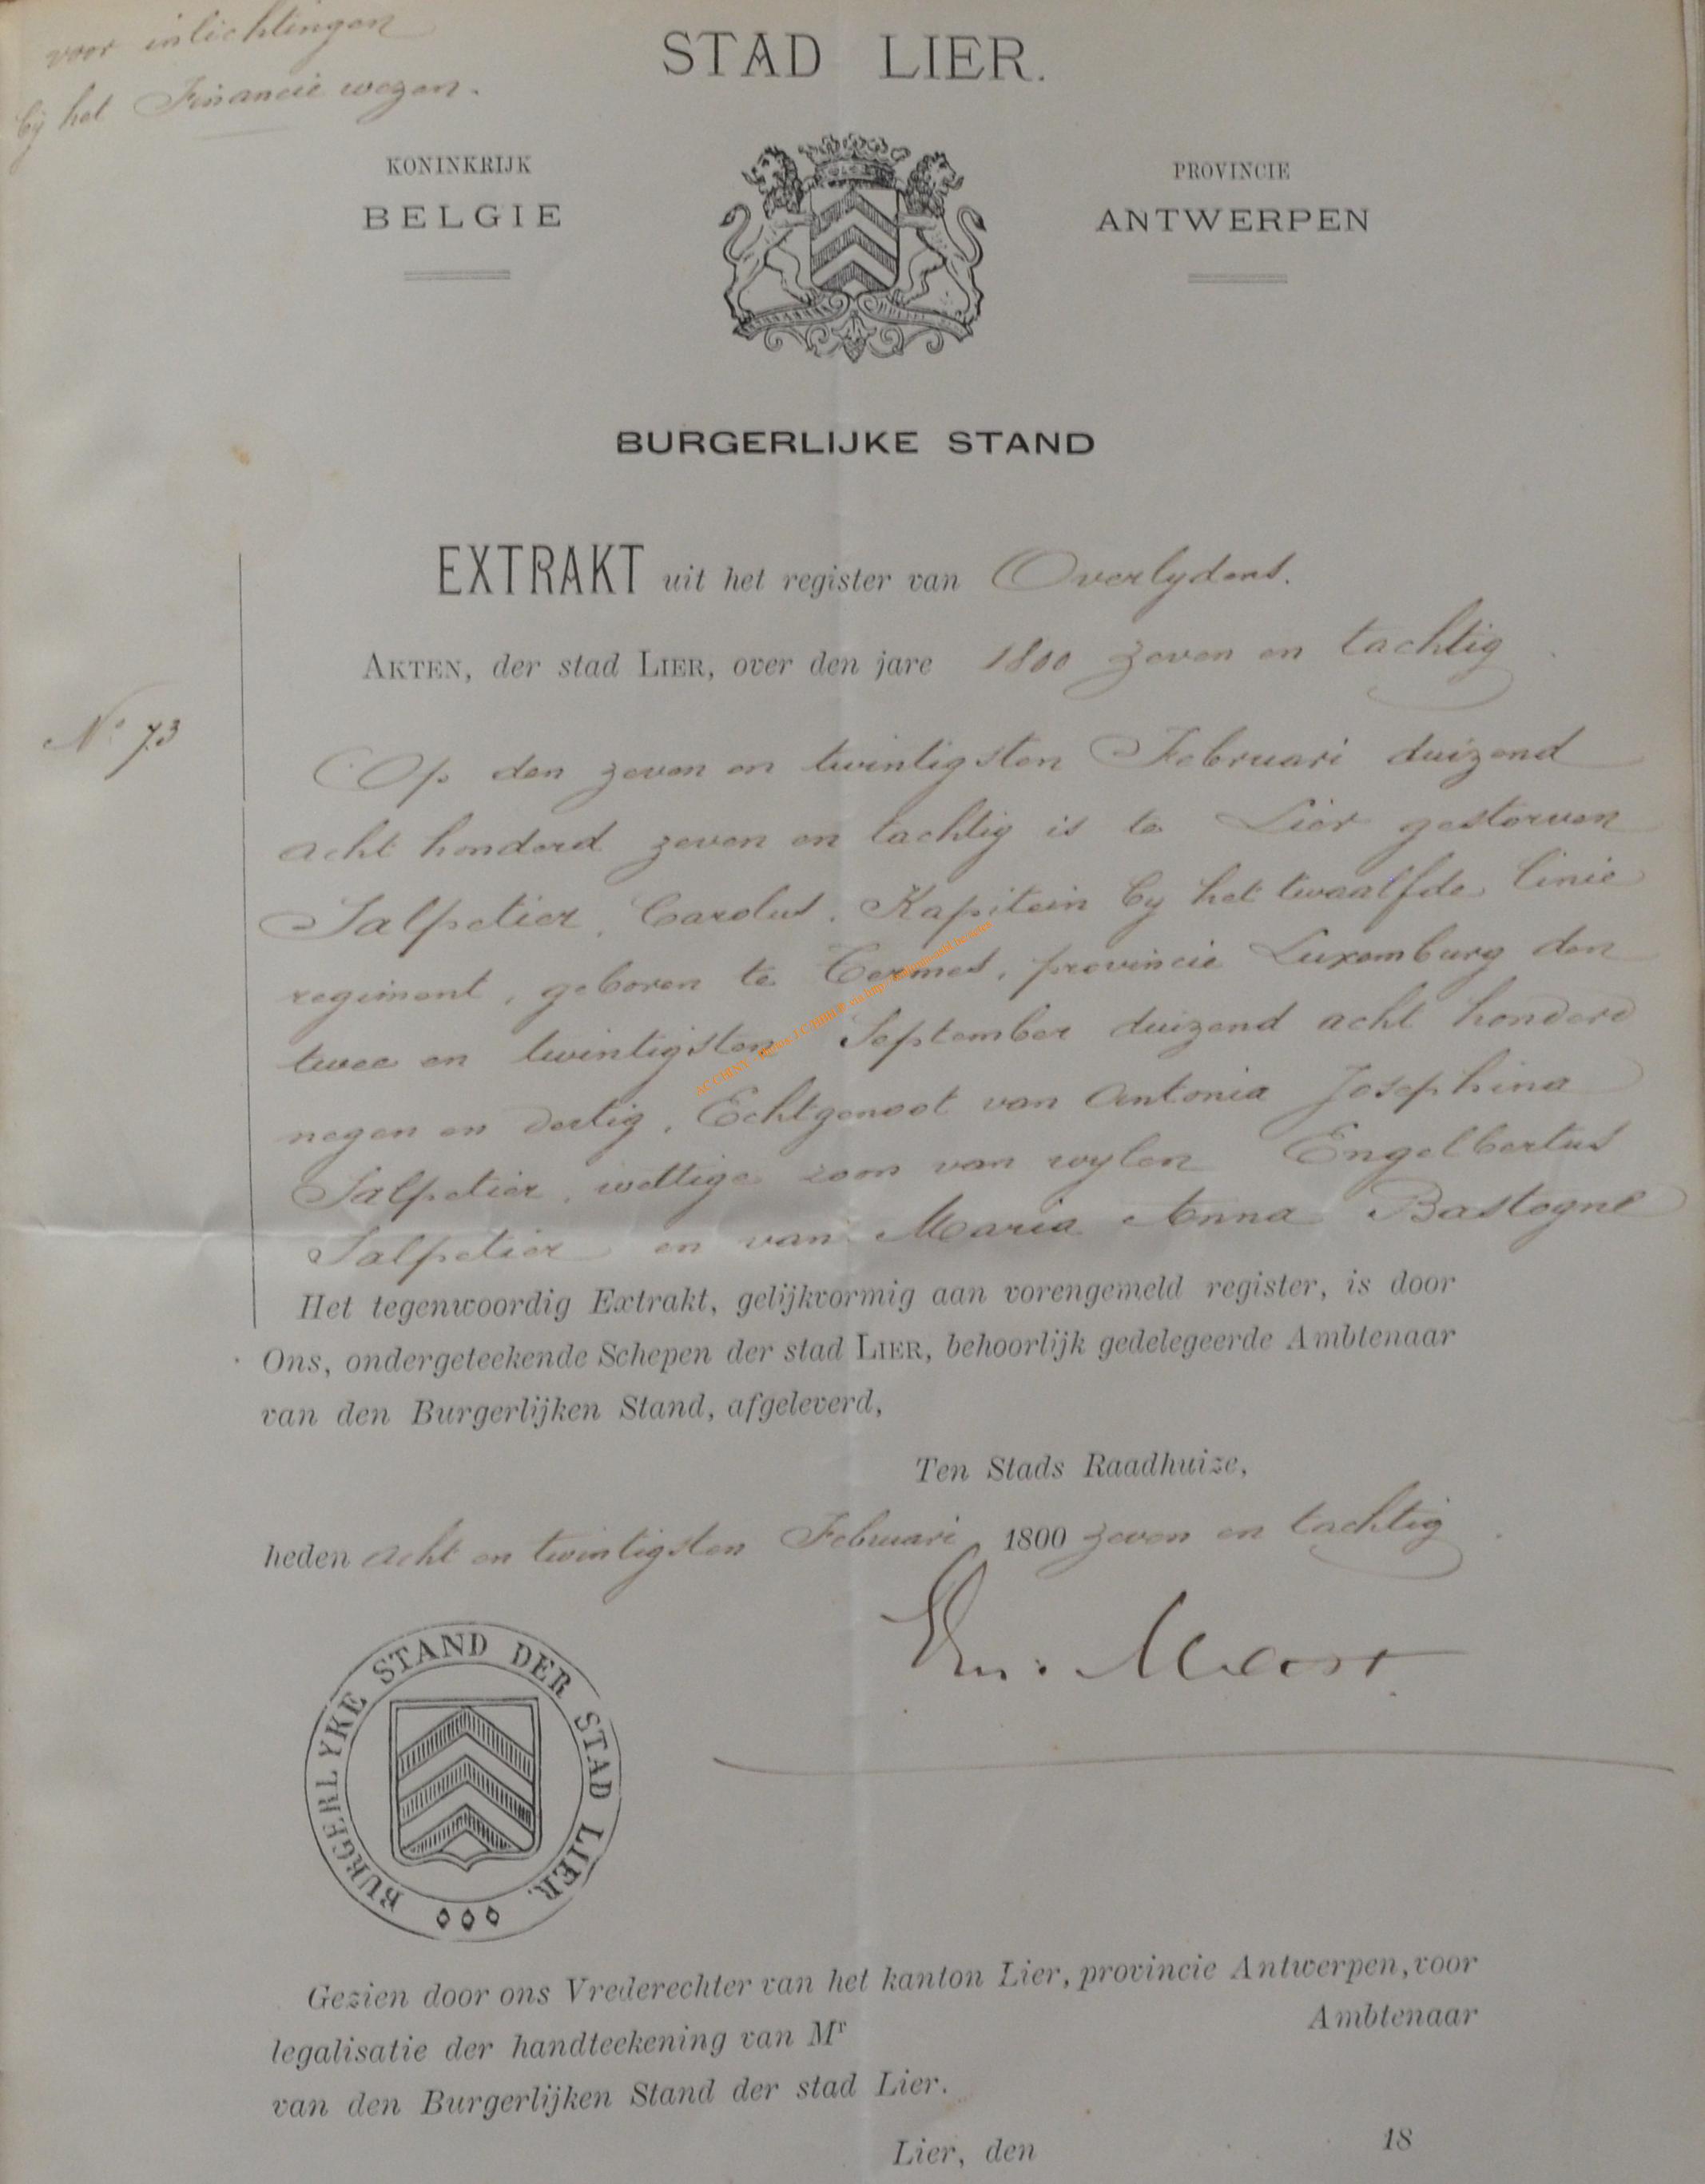 voor inlichtingen
bij het Financie wezen.
STAD LIER.
KONINKRIJK
BELGIE
PROVINCIE
ANTWERPEN
BURGERLIJKE STAND
EXTRAKT uit het register van Overlydens.
AKTEN, der stad LIER, over den jare 1800 zeven en tachtig
N° 73
Op den zeven en twintigsten Februari duizend
acht honderd zeven en tachtig is te Lier gestorven
Salpetier, Carolus, Kapitein by het twaalfde linie
regiment, geboren te Termes, provincie Luxemburg den
twee en twintigsten September duizend acht honderd
negen en dertig, Echtgenoot van Antonia Josephina
Salpetier, wettige zoon van wylen Engelbertus
Salpetier en van Maria Anna Bastogne
Het tegenwoordig Extrakt, gelijkvormig aan vorengemeld register, is door
Ons, ondergeteekende Schepen der stad LIER, behoorlijk gedelegeerde Ambtenaar
van den Burgerlijken Stand, afgeleverd,
Ten Stads Raadhuize,
heden acht en twintigsten Februari 1800 zeven en tachtig
BURGERLYKE STAND DER STAD LIER.
Gezien door ons Vrederechter van het kanton Lier, provincie Antwerpen, voor
legalisatie der handteekening van Mr Ambtenaar
van den Burgerlijken Stand der stad Lier.
Lier, den 18